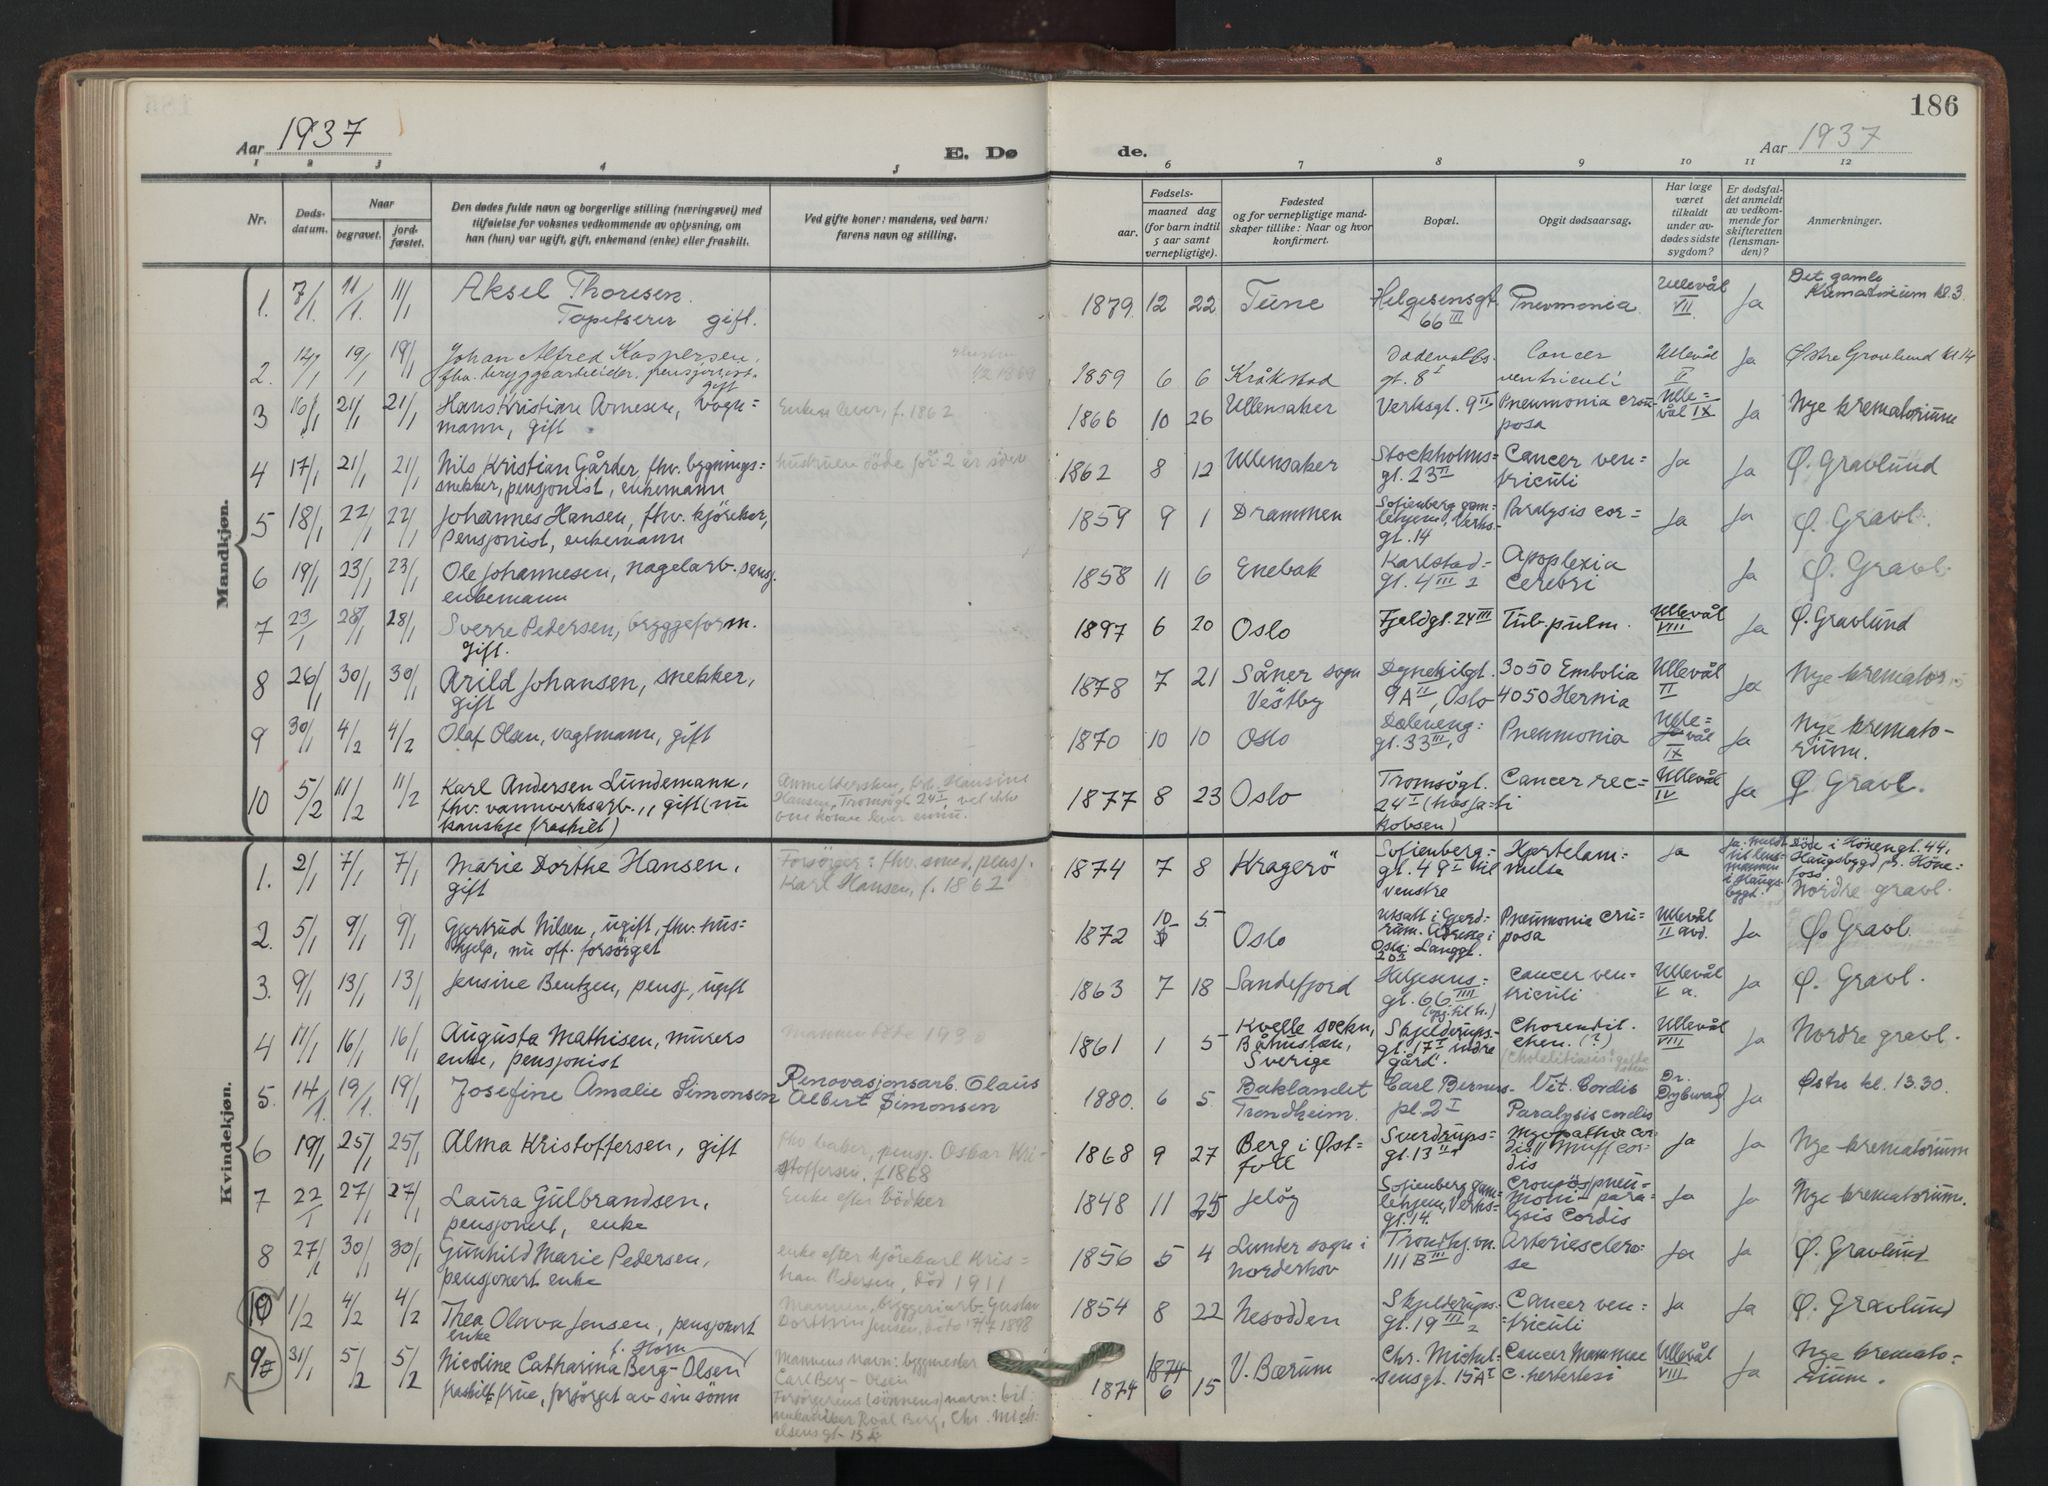 186
Aar 1937
E. Dø de.
Aar 1937
1 2 3 4 5 6 7 8 9 10 11 12
Nr.
Døds-
datum.
Naar
begravet.
jord-
fæstet.
Den dødes fulde navn og borgerlige stilling (næringsvei) med
tilføielse for voksnes vedkommende av oplysning, om
han (hun) var ugift, gift, enkemand (enke) eller fraskilt.
Ved gifte koner: mandens, ved barn:
farens navn og stilling.
Fødsels-
aar.
maaned dag
(for barn indtil
5 aar samt
vernepligtige).
Fødested
og for vernepligtige mand-
skaper tillike: Naar og hvor
konfirmert.
Bopæl.
Opgit dødsaarsag.
Har læge
været
tilkaldt
under av-
dødes sidste
sygdom?
Er dødsfal-
det anmeldt
av vedkom-
mende for
skifteretten
(lensman-
den)?
Anmerkninger.
Mandkjøn.
1. 7/1 11/1 11/1 Aksel Thoresen.
Tapetserer gift.
1879. 12 22 Tune Helgesensgt. 66 III Pneumonia Ullevål VII Ja Det gamle
Krematorium kl. 3.
2. 12/1 19/1 19/1 Johan Alfred Kaspersen,
fhv. bryggearbeider, pensjonist.
gift
1859 6 6 Kråkstad gt. 8 I Cancer
ventriculi Ullevål II Ja Østre Gravlund kl. 14
3 16/1 21/1 21/1 Hans Kristian Arnesen, vogn=
mann, gift
Enken lever, f. 1862
1866 10 26 Ullensaker Verksgt. 9 II Pneumonia crou-
posa Ulle=
vål IX Ja Nye krematorium
4 17/1 21/1 21/1 Nils Kristian Gårder, fhv. bygnings=
snekker, pensjonist, enkemann
hustruen døde for 2 år siden
1862 8 12 Ullensaker Stockholms=
gt. 23 II Cancer ven=
triculi Ja Ja Ø. Gravlund
5 18/1 22/1 22/1 Johannes Hansen, fhv. kjörekar,
Pensjonist, enkemann
1859 9 1 Drammen Sofienberg gam-
lehjem, Verks-
gt. 14 Paralysis cor= Ja Ja Ø. Gravl.
6 19/1 23/1 23/1 Ole Johannesen, nagelarb. pensj.
enkemann
1858 11 6 Enebak Karlstad=
gt. 4 III 2 Apoplexia
Cerebri Ja Ø. Gravl.
7 23/1 28/1 28/1 Sverre Pedersen, bryggeform.
Gift.
1897 6 20 Oslo Fjeldgt. 24 III Tub. pulm. Ullevål
VIII Ja Ø. Gravlund
8 26/1 30/1 30/1 Arild Johansen, snekker,
Gift
1878 7 21 Såner sogn
Vestby Dynekilgt.
9A II, Oslo 3050 Embolia
4050 Hernia Ullevål
II Ja Nye kremator
9 30/1 4/2 4/2 Olaf Olsen, vagtmann, gift
1870 10 10 Oslo Dæleneng=
gt. 33 III, Pneumonia Ulle=
vål
IX Ja Nye kremato-
rium.
10 5/2 11/2 11/2 Karl Andersen Lundemank,
fhv. vannverksarb., gift (nu
kanskje fraskilt)
Anmeldersken, frk. Hansine
Hansen, Tromsögt. 24 I, vet ikke
om konen lever ennu.
1877 8 23 Oslo Tromsögt.
24 I (hos Ja-
kobsen) Cancer rec=
ti Ullevål
IV Ja Ø Gravl.
Kvindekjøn.
1. 2/1 7/1 7/1 Marie Dorthe Hansen,
gift
Forsörger: fhv. smed, pensj.
Karl Hansen, f. 1862
1874 7 8 Kragerö Sofienberg=
gt. 49 I til
venstre Hjertelam=
melse Ja Ja. meldt
til lens-
mannen
i Haugs-
bygd. Döde i Hönengt. 44,
Haugsbygd pr. Höne-
foss.
Nordre gravl.
2. 5/1 9/1 9/1 Gjertrud Nilsen, ugift, fhv. hus-
hjelp, nu off. forsörget
1872 10 5 Oslo Utsatt i Gjerd-
rum. Adresse i
Oslo: Langgt.
20 I Pneumonia cru-
posa Ullevål
II avd. Ja Ø. Gravl.
3. 9/1 13/1 13/1 Jensine Bentzen, pensj, ugift
1863 7 18 Sandefjord Helgesens=
gt. 66 III
(opg. til h.) Cancer ven-
triculi Ullevål
V a. Ja Ø. Gravl.
4 11/1 16/1 16/1 Augusta Mathisen, murers
enke, pensjonist
Mannen döde 1930
1861 1 5 Kvelle sockn,
Båhuslæn,
Sverige Skjelderups-
gt. 17 I indre
gård. (?)
(Cholelitiasis: Ullevål
VIII Ja Nordre gravl.
5. 14/1. 19/1. 19/1 Josefine Amalie Simonsen
Renovasjonsarb. Olaus
Albert Simonsen
1880. 6 5. Baklandet
Trondheim. Carl Berners-
pl. 2 I Vit. Cordis
Paralysis cordis Dr.
Dybwad Ja Østre kl. 13.30
6 19/1 25/1 25/1 Alma Kristoffersen, gift
fhv baker, pensj. Oskar Kri-
stoffersen. f 1868
1868 9 27 Berg i Øst-
fold Sverdrups=
gt. 13 II Myopathia cor-
dis Ja Ja Nye krematorium
7 22/1 27/1 27/1 Laura Gulbrandsen,
pensjonert, enke
Enke efter bödker
1848 11 25 Jelöy Sofienberg gam-
lehjem, Verks-
gt. 14. Croupös pneu-
moni - para-
lysis Cordis Ja Ja Nye krematorium.
8 27/1 30/1 30/1 Gunhild Marie Pedersen,
pensjonert enke
enke efter kjörekarl Kris=
tian Pedersen, död 1911
1856 5 4 Lunder sogn i
Norderhov Trondhj. vn.
111 B III Arteriesclero-
se Ja Ja Ø. Gravlund
10 1/2 4/2 4/2 Thea Olava Jensen, pensjonert
enke
Mannen, bryggeriarb. Gustav
Jensen, döde 17/7 1898
1854 8 22 Nesodden Skjelderups-
gt. 19 III 2 Cancer ven=
triculi Ja Ja Ø. Gravlund
9 31/1 5/2 5/2 Nicoline Catharina Berg-Olsen
f. Horn
fraskilt frue, forsörget av sin sönn
Mannens navn: byggmester
Carl Berg-Olsen
Forsörgerens (sönnens) navn: bil-
Roal Berg, Chr. Mich-
elsens gt. 15 A
1874
1874 6 15 V. Bærum Chr. Michel-
sensgt. 15A I Cancer Mammae Ullevål
VIII Ja Nye kremato-
rium.